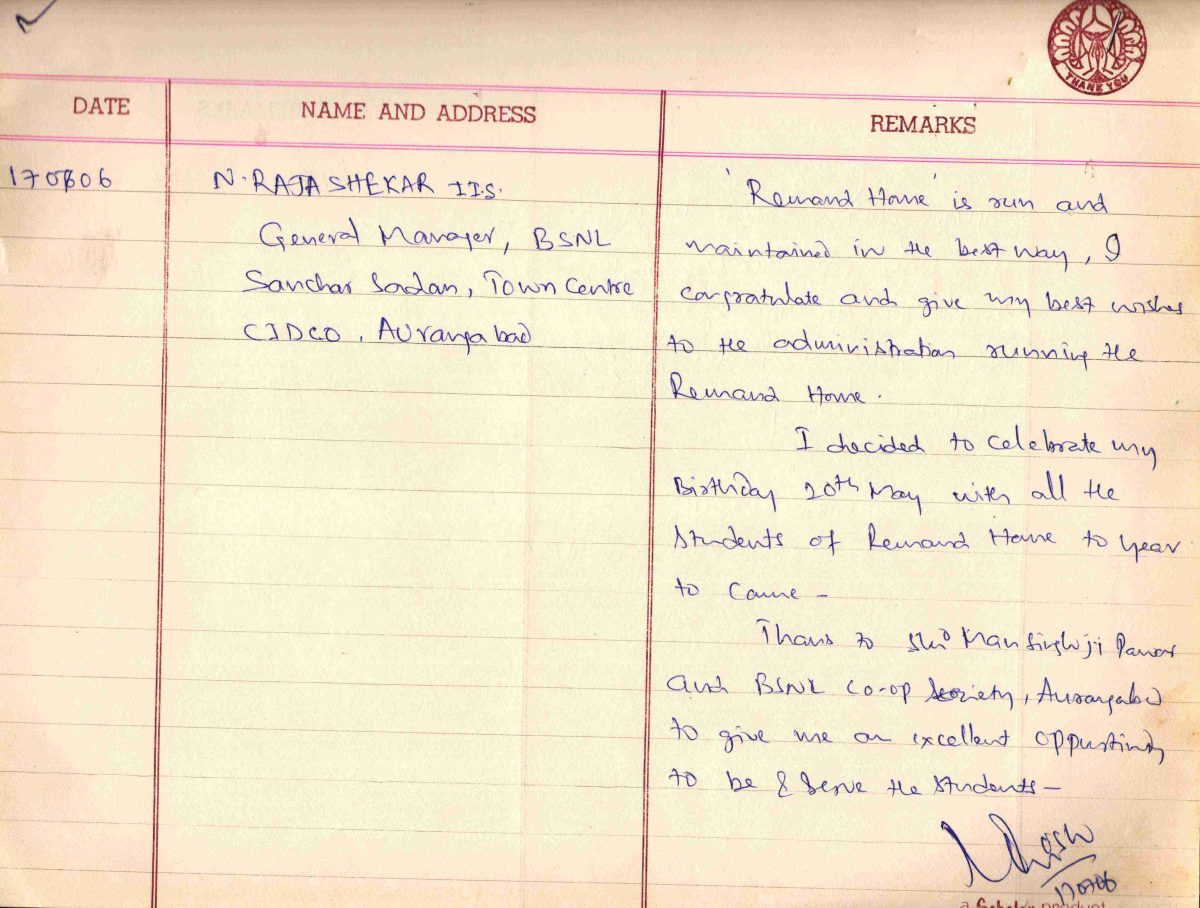 THANK YOU
DATE
NAME AND ADDRESS
REMARKS
N. RAJA SHEKAR I.T.S.
General Manager, BSNL
Sanchar Sadan, Town Centre
CIDCO, Aurangabad
'Remand Home' is run and
maintained in the best way, I
congratulate and give my best wishes
to the administration running the
Remand Home.
I decided to celebrate my
Birthday 20th May with all the
Students of Remand Home to year
to come –
Thans to Shri Mansinghji Pawar
and BSNL Co-op Society, Aurangabad
to give me an excellent oppurtinity
to be & Serve the Students –
a Scholar product